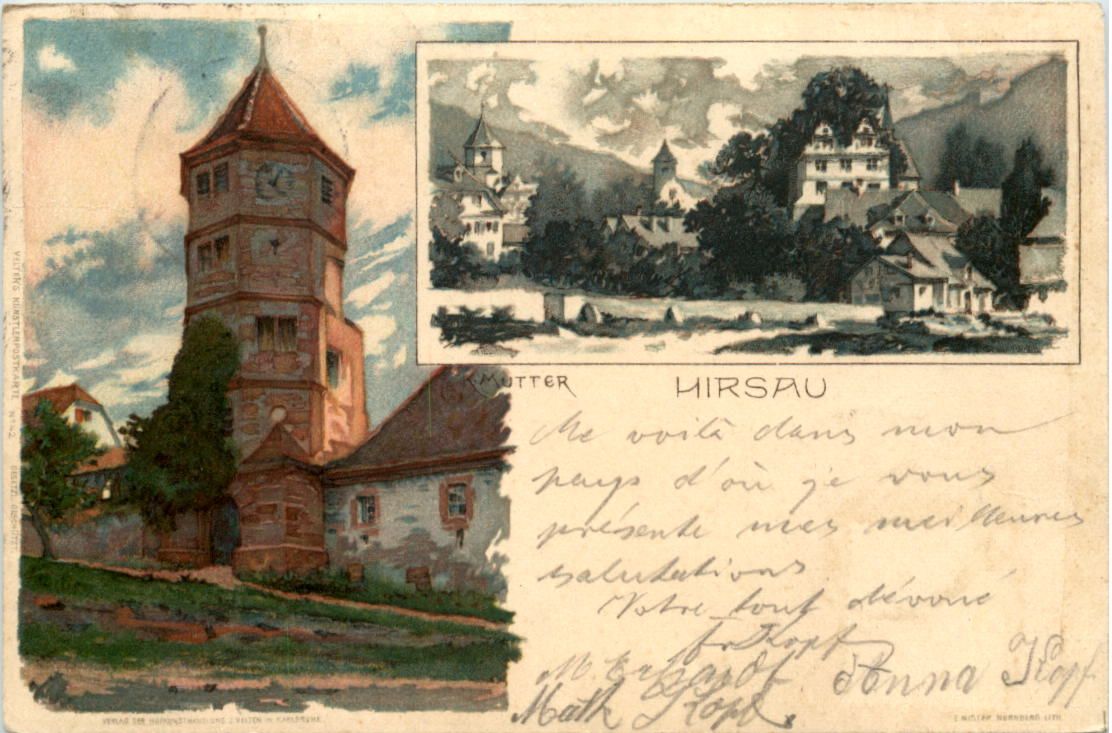 VELTEN'S KÜNSTLERPOSTKARTE
GESETZL. GESCHÜTZT.
K. MUTTER
HIRSAU
Me voilà dans mon
pays d'où je vous
présente mes meilleures
salutations
Votre tout dévoué
Kopf
M. Erhardt Anna Kopf
Math Kopf
VERLAG DER HOFKUNSTHANDLUNG J. VELTEN IN KARLSRUHE.
E. NISTER NÜRNBERG LITH.